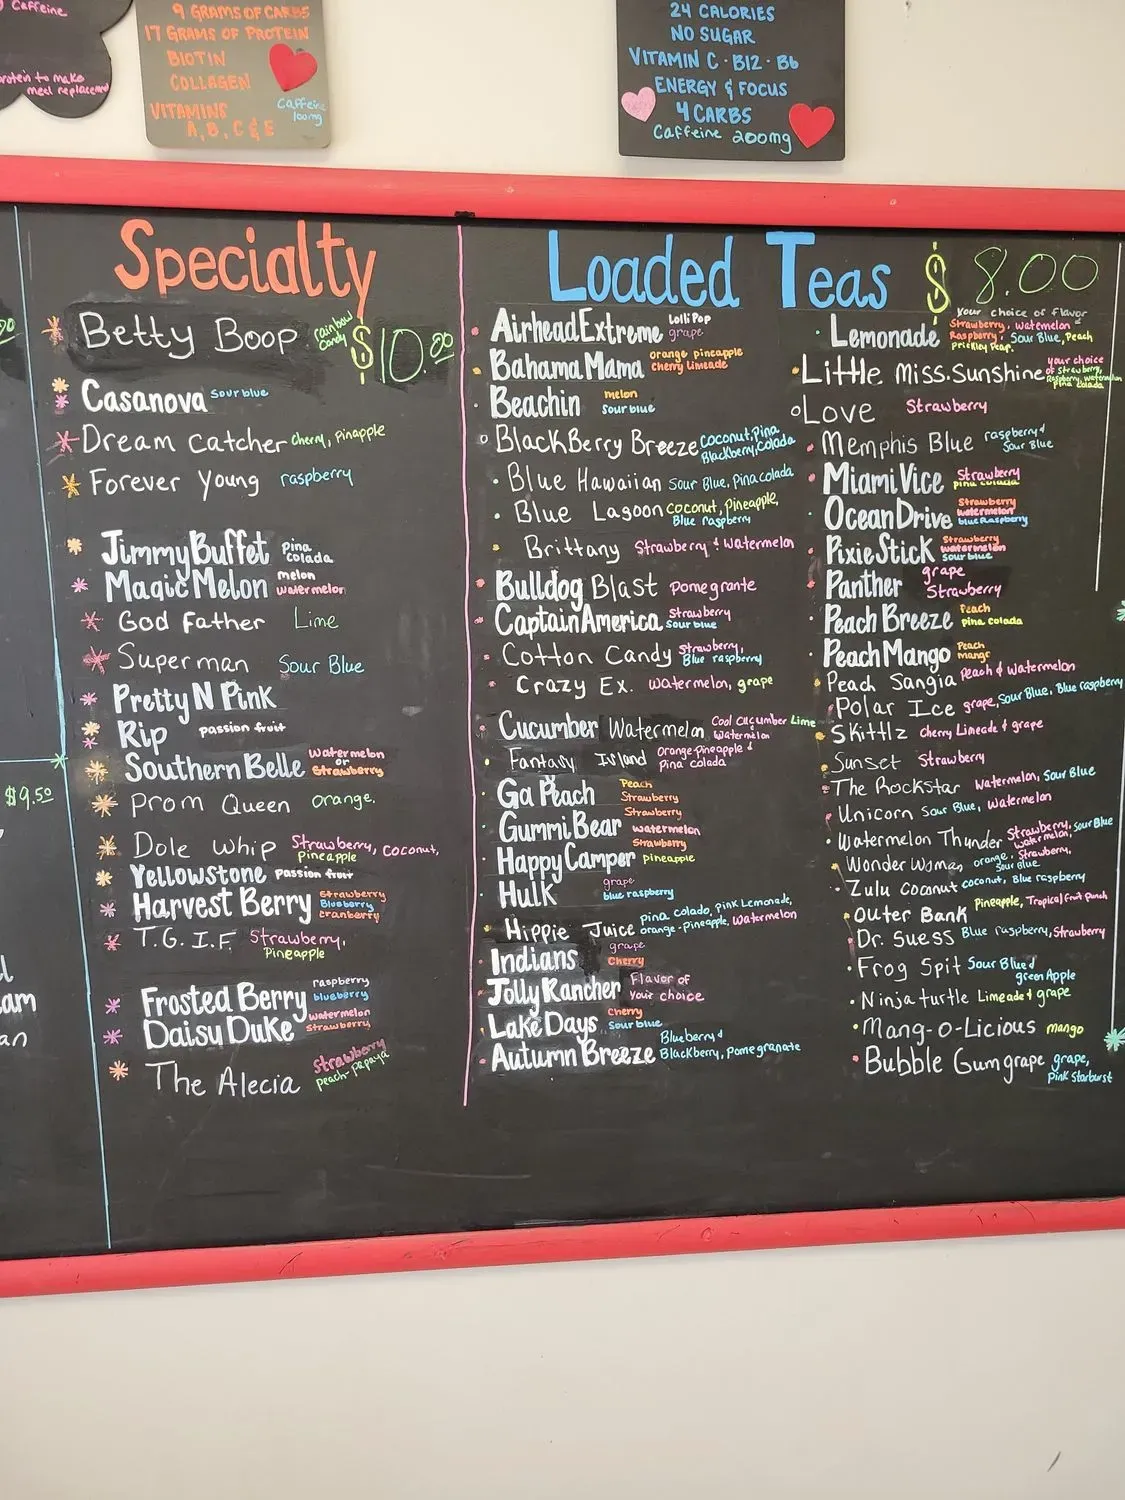 Caffeine
protein to make
meal replacement
9 GRAMS OF CARBS
17 GRAMS OF PROTEIN
BIOTIN
COLLAGEN
VITAMINS
A, B, C & E
Caffeine
100mg
24 CALORIES
NO SUGAR
VITAMIN C · B12 · B6
ENERGY & FOCUS
4 CARBS
Caffeine 200mg
$9.50
am
an
Specialty
Betty Boop rainbow candy $10.00
Casanova Sour blue
Dream catcher cherry, pinapple
Forever Young raspberry
Jimmy Buffet pina colada
Magic Melon melon watermelon
God Father Lime
Super man Sour Blue
Pretty N Pink
Rip passion fruit
Southern Belle watermelon or Strawberry
Prom Queen orange.
Dole whip Strawberry, coconut, Pineapple
Yellowstone passion fruit
Harvest Berry Strawberry Blueberry cranberry
T.G.I.F. Strawberry, Pineapple
Frosted Berry raspberry blueberry
Daisy Duke watermelon Strawberry
The Alecia Strawberry peach-papaya
Loaded Teas $ 8.00
Airhead Extreme Lolli Pop grape
Bahama Mama orange pineapple cherry limeade
Beachin melon Sour blue
BlackBerry Breeze coconut, pina Blackberry, colada
Blue Hawaiian Sour Blue, Pina colada
Blue Lagoon coconut, Pineapple, Blue raspberry
Brittany Strawberry & Watermelon
Bulldog Blast pomegrante
Captain America Strawberry Sour blue
Cotton Candy Strawberry, Blue raspberry
Crazy Ex. watermelon, grape
Cucumber Watermelon Cool Cucumber Lime Watermelon
Fantasy Island Orange-Pineapple & Pina colada
Ga Peach Peach Strawberry
Gummi Bear Strawberry watermelon
Happy Camper Strawberry pineapple
Hulk grape blue raspberry
Hippie Juice pina colado, pink Lemonade, orange-pineapple, watermelon
Indians grape Cherry
Jolly Rancher Flavor of Your choice
Lake Days Cherry Sour blue
Autumn Breeze Blueberry & Blackberry, Pomegranate
Lemonade Your choice of flavor Strawberry, watermelon Raspberry, Sour Blue, Peach Prickly Pear.
Little Miss. Sunshine your choice of Strawberry, Raspberry, watermelon Pina Colada
Love Strawberry
Memphis Blue raspberry & Sour Blue
Miami Vice Strawberry pina colada
Ocean Drive Strawberry watermelon blue Raspberry
Pixie Stick Strawberry watermelon Sour blue
Panther grape Strawberry
Peach Breeze Peach pina colada
Peach Mango Peach mango
Peach Sangia Peach & Watermelon
Polar Ice grape, Sour Blue, Blue raspberry
Skittlz cherry Limeade & grape
Sunset Strawberry
The Rockstar Watermelon, Sour Blue
Unicorn Sour Blue, Watermelon
Watermelon Thunder Strawberry, Sour Blue watermelon
Wonder Woman orange, Strawberry, Sour Blue
Zulu coconut coconut, Blue raspberry
Outer Bank Pineapple, Tropical fruit Punch
Dr. Suess Blue raspberry, Strawberry
Frog Spit Sour Blue & green Apple
Ninja turtle Limeade & grape
Mang-o-Licious mango
Bubble Gum grape grape, Pink Starburst